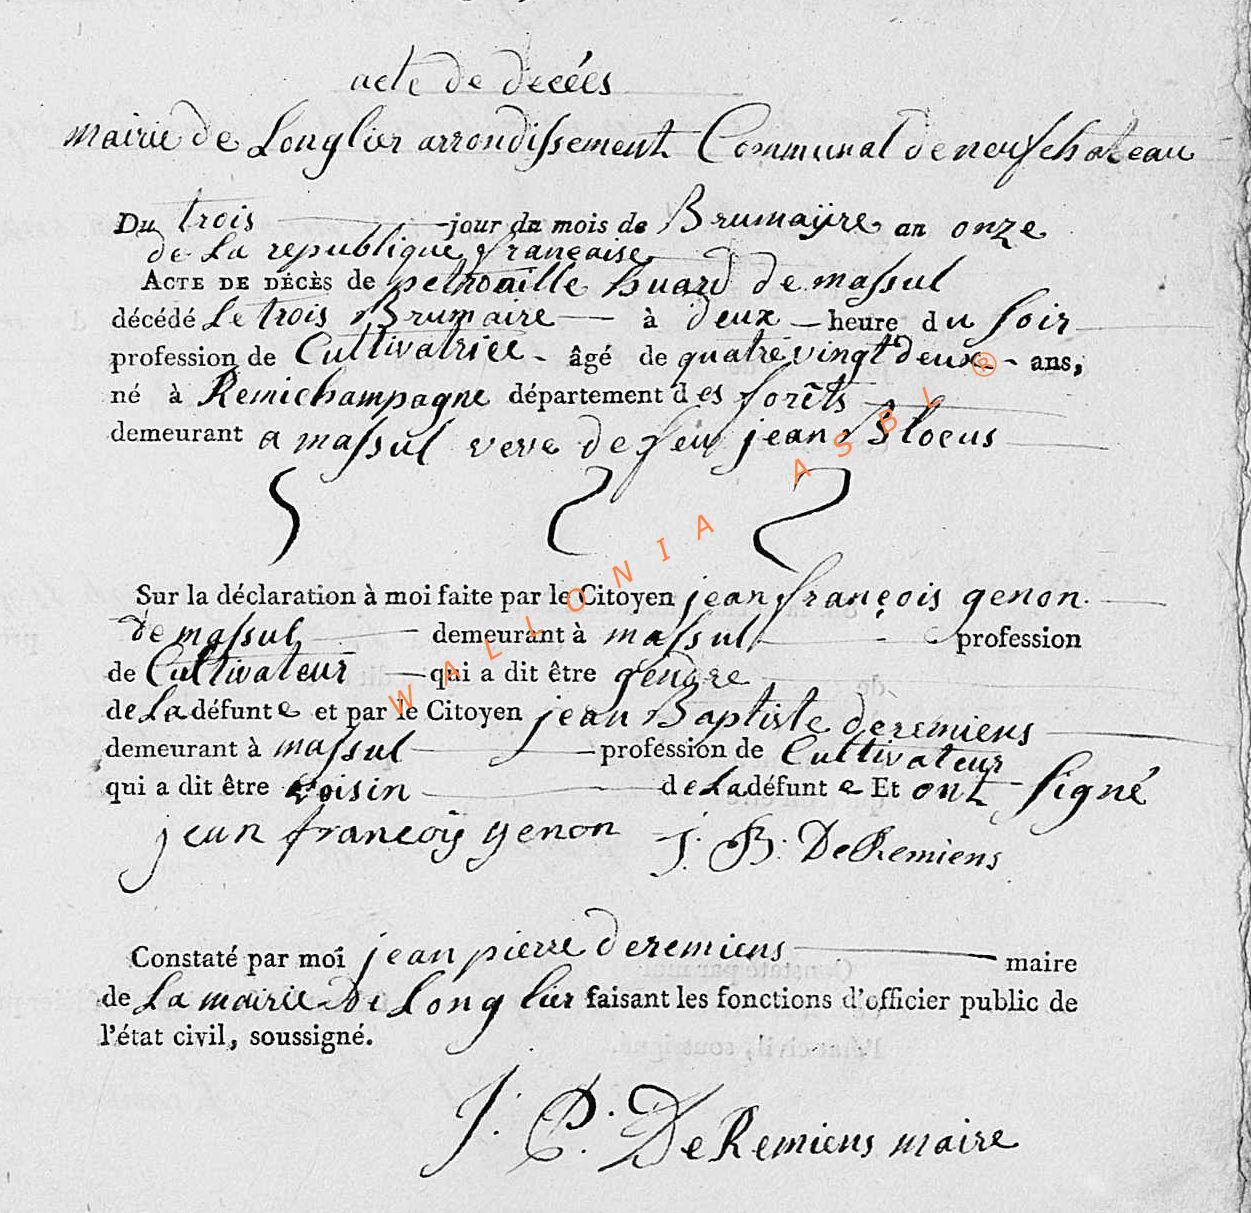 acte de decées
mairie de Longlier arrondissement Communal de neufchateau
Du trois jour du mois de Brumaÿre an onze
de La republique française
ACTE DE DÉCÈS de petronille huard de massul
décédé Le trois Brumaire à deux heure du soir
profession de Cultivatrice âgé de quatre vingt deux ans,
né à Remichampagne département des forêts
demeurant a massul veve de feu jean Blocus
Sur la déclaration à moi faite par le Citoyen jean françois genon
de massul demeurant à massul profession
de Cultivateur qui a dit être gendre
de La défunte et par le Citoyen jean Baptiste deremiens
demeurant à massul profession de Cultivateur
qui a dit être voisin de La défunte Et ont signé
jean françois genon J. B. DeRemiens
Constaté par moi jean pierre deremiens maire
de La mairie De Longlier faisant les fonctions d'officier public de
l'état civil, soussigné.
J. P. DeRemiens maire
WALLONIA ASBL ®